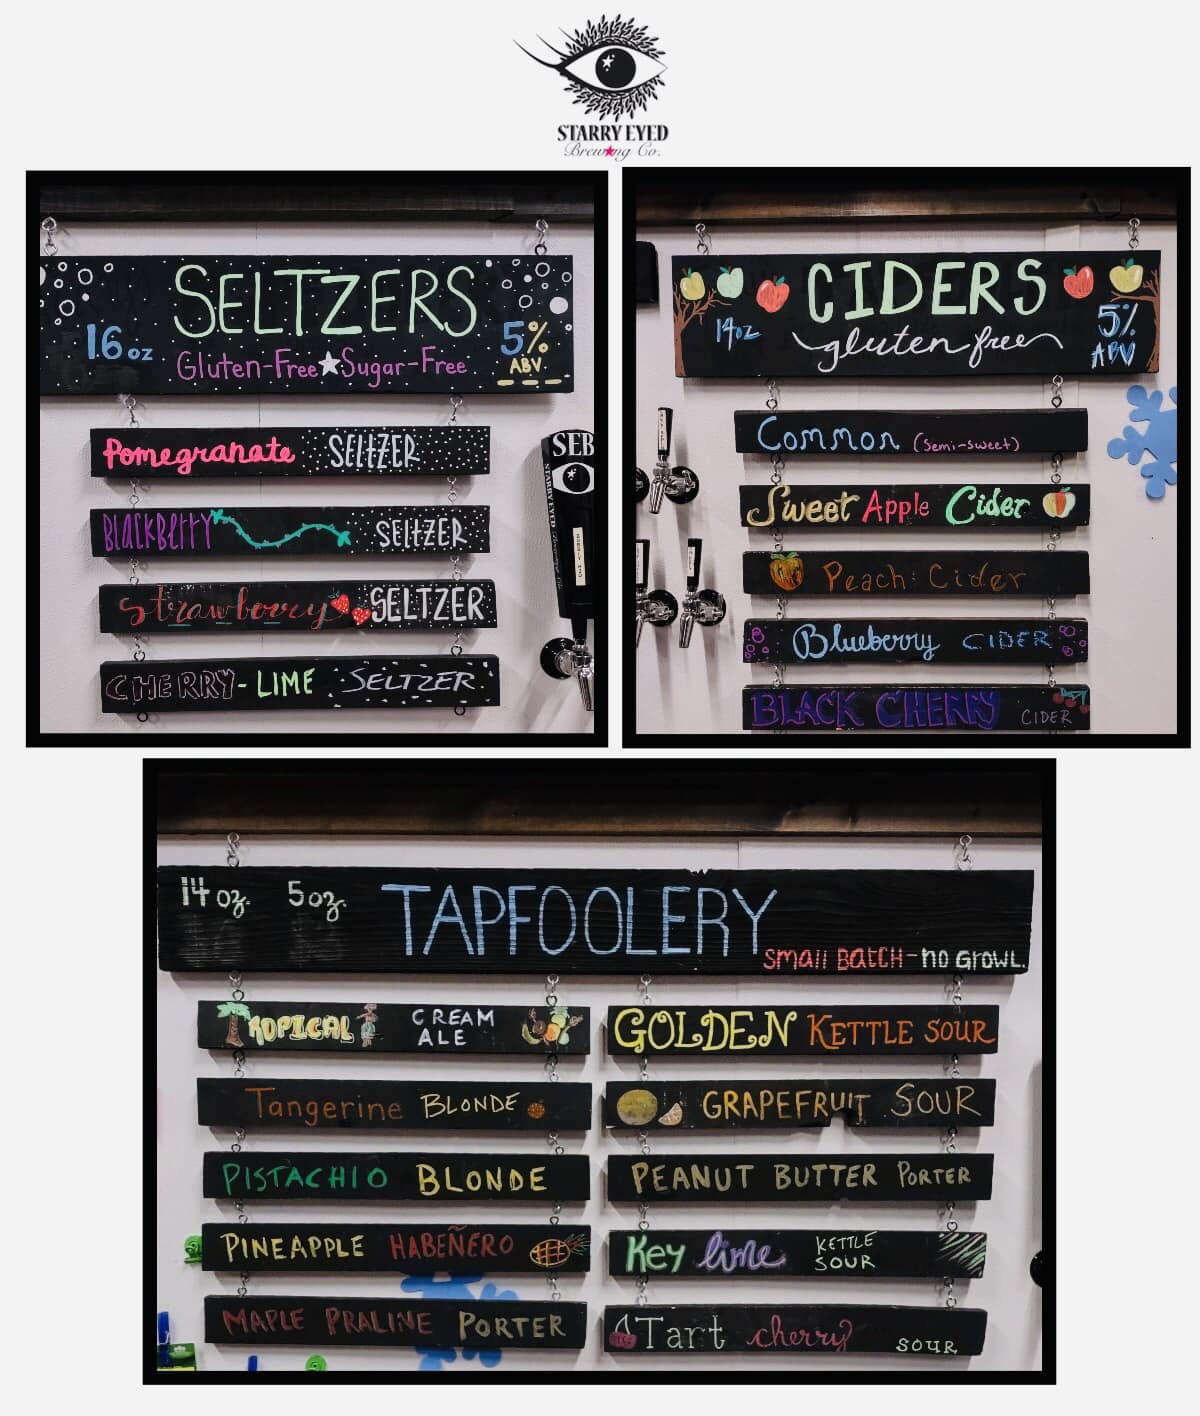 STARRY EYED
Brewing Co.
SELTZERS
16 oz
Gluten-Free Sugar-Free
5%
ABV
Pomegranate SELTZER
BLACKBERRY SELTZER
Strawberry SELTZER
CHERRY-LIME SELTZER
SEB
STARRY EYED
CIDERS
14oz
gluten free
5%
ABV
Common (Semi-sweet)
Sweet Apple Cider
Peach Cider
Blueberry CIDER
BLACK CHERRY CIDER
14 oz. 5 oz.
TAPFOOLERY
Small BatCH-no GrowL.
TROPICAL CREAM
ALE
Tangerine BLONDE
PISTACHIO BLONDE
PINEAPPLE HABEÑERO
MAPLE PRALINE PORTER
GOLDEN KETTLE SOUR
GRAPEFRUIT SOUR
PEANUT BUTTER PORTER
Key lime KETTLE
SOUR
Tart cherry SOUR